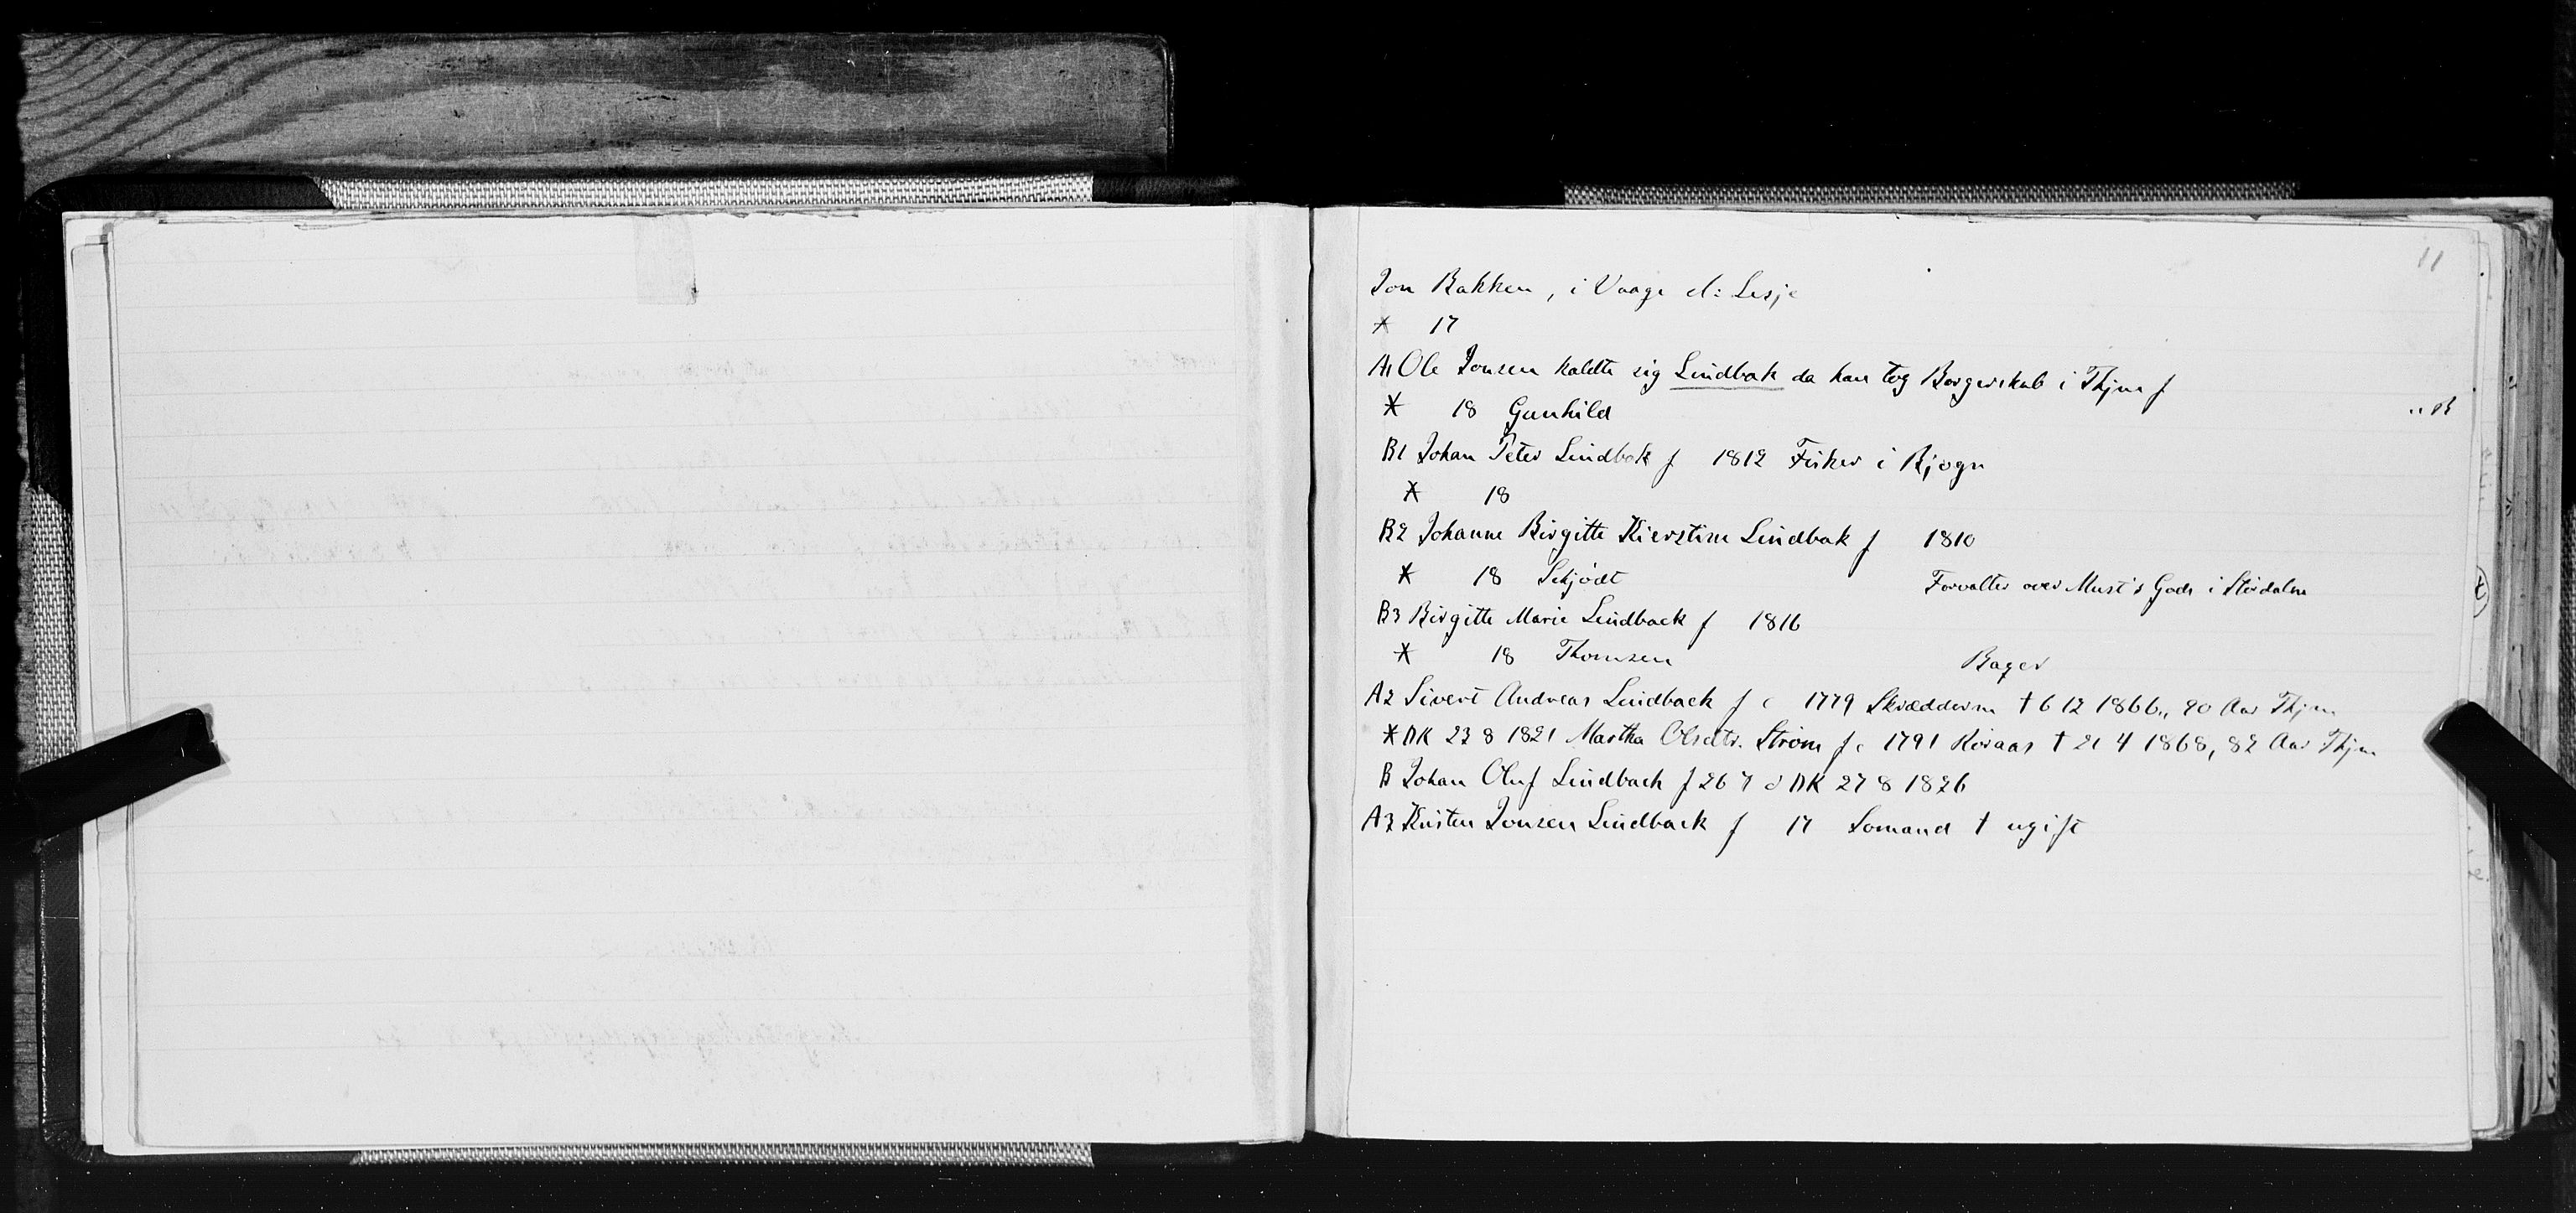 11
Jon Bakken, i Vaage el: Lesje
* 17
A1 Ole Jonsen kaldte sig Lindbak da han tog Borgerskab i Thjm f
* 18 Gunhild
B1 Johan Peter Lindbak f 1812 Fisker i Bjogn
* 18
B2 Johanne Birgitte Kierstine Lindbak f 1810
* 18 Schjödt Forvalter over Must's Gods i Stördalen
B3 Birgitte Marie Lindback f 1816
* 18 Thomsen Bager
A2 Sivert Andreas Lindback f c 1779 Skrædderm † 6 12 1866, 90 Aar Thjm
* DK 23 8 1821 Martha Olsdtr. Ström f c 1791 Röraas † 21 4 1868, 82 Aar Thjm
B Johan Oluf Lindback f 26 7 d DK 27 8 1826
A3 Kristen Jonsen Lindback f 17 Somand † ugift